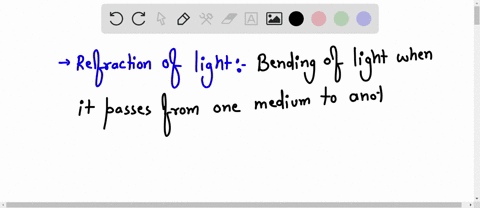 → Refraction of light:- Bending of light when
it passes from one medium to anot